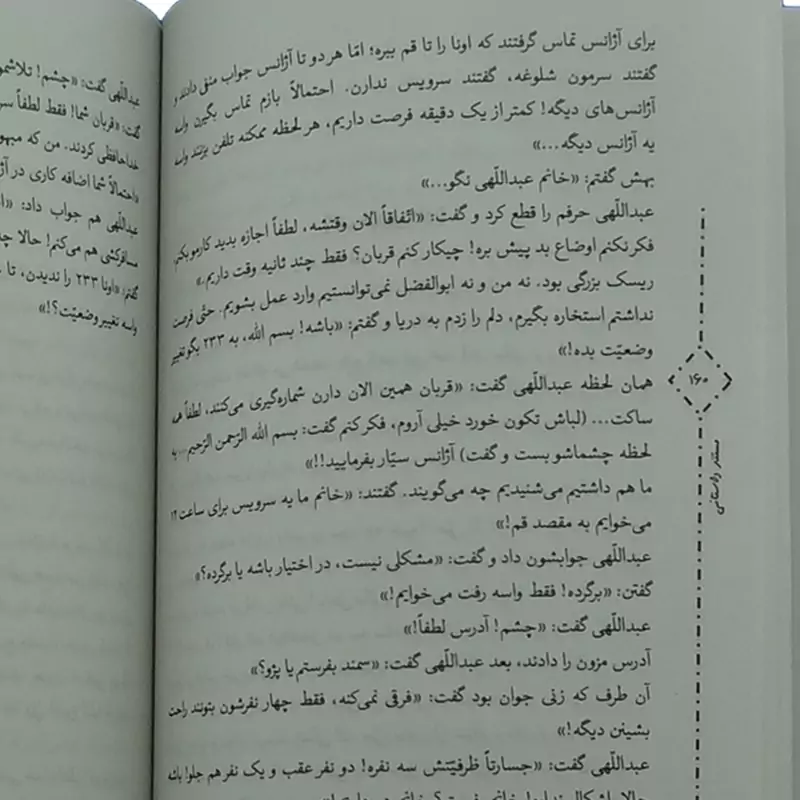 برای آژانس تماس گرفتند که اونا را تا قم ببره؛ امّا هر دو تا آژانس جواب منفی دادند و
گفتند سرمون شلوغه، گفتند سرویس ندارن. احتمالاً بازم تماس بگیرن واسه
آژانس‌های دیگه! کمتر از یک دقیقه فرصت داریم، هر لحظه ممکنه تلفن بزنند واسه
یه آژانس دیگه...»
بهش گفتم: «خانم عبداللّهی نگو...»
عبداللّهی حرفم را قطع کرد و گفت: «اتّفاقاً الان وقتشه، لطفاً اجازه بدید کارمو بکنم.
فکر نکنم اوضاع بد پیش بره! چیکار کنم قربان؟ فقط چند ثانیه وقت داریم.»
ریسک بزرگی بود. نه من و نه ابوالفضل نمی‌توانستیم وارد عمل بشویم. حتّی فرصت
نداشتم استخاره بگیرم، دلم را زدم به دریا و گفتم: «باشه! بسم الله، به ۲۳۳ بگو تغییر
وضعیّت بده!»
همان لحظه عبداللّهی گفت: «قربان همین الان دارن شماره‌گیری می‌کنند، لطفاً همه
ساکت... (لباش تکون خورد خیلی آروم، فکر کنم گفت: بسم الله الرّحمن الرّحیم... یه
لحظه چشماشو بست و گفت) آژانس سیّار بفرمایید!!»
ما هم داشتیم می‌شنیدیم چه می‌گویند. گفتند: «خانم ما یه سرویس برای ساعت ۱۲
می‌خوایم به مقصد قم!»
عبداللّهی جوابشون داد و گفت: «مشکلی نیست، در اختیار باشه یا برگرده؟»
گفتن: «برگرده! فقط واسه رفت می‌خوایم!»
عبداللّهی گفت: «چشم! آدرس لطفاً!»
آدرس مزون را دادند، بعد عبداللّهی گفت: «سمند بفرستم یا پژو؟»
آن طرف که زنی جوان بود گفت: «فرقی نمی‌کنه، فقط چهار نفرشون بتونند راحت
بشینن دیگه!»
عبداللّهی گفت: «جسارتاً ظرفیّتش سه نفره! دو نفر عقب و یک نفر هم جلو! باشه
۱۶۰
مستند داستانی
عبداللّهی گفت: «چشم! تلاشمو
گفت: «قربان شما! فقط لطفاً سر
خداحافظی کردند. من که مبهو
«احتمالاً شما اضافه کاری در آژ
عبداللّهی هم جواب داد: «ا
مسافرکشی هم می‌کنم! حالا چه
گفتم: «اونا ۲۳۳ را ندیدن، تا
واسه تغییر وضعیّت؟!»